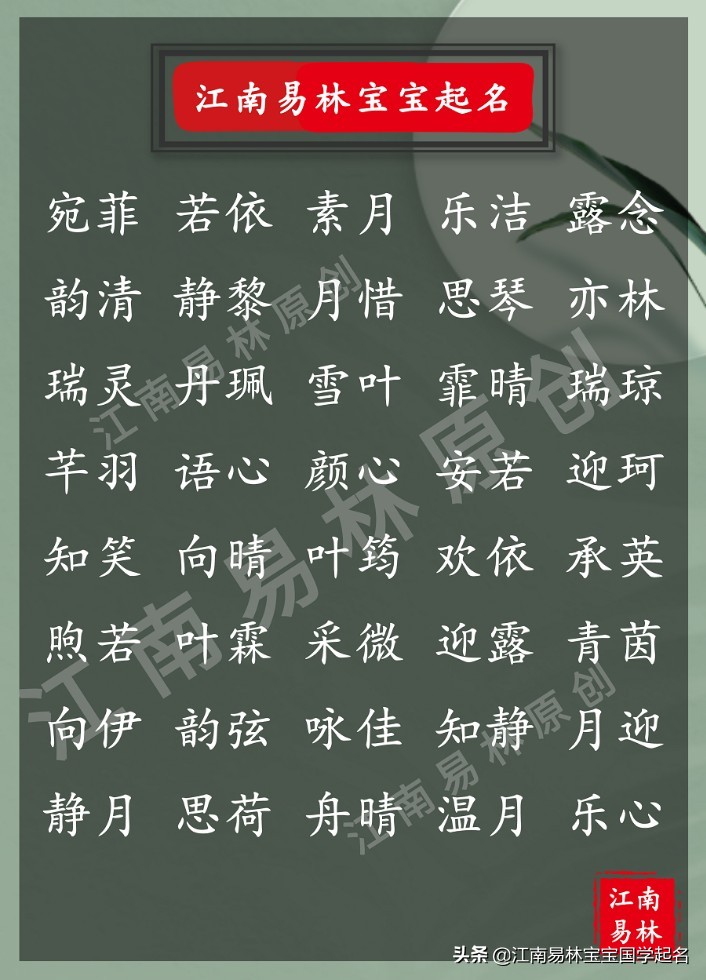 江南易林宝宝起名
宛菲 若依 素月 乐洁 露念
韵清 静黎 月惜 思琴 亦林
瑞灵 丹珮 雪叶 霏晴 瑞琼
芊羽 语心 颜心 安若 迎珂
知笑 向晴 叶筠 欢依 承英
煦若 叶霖 采微 迎露 青茵
向伊 韵弦 咏佳 知静 月迎
静月 思荷 舟晴 温月 乐心
江南易林原创
江南易林原创
江南易林原创
江南
易林
头条 @江南易林宝宝国学起名